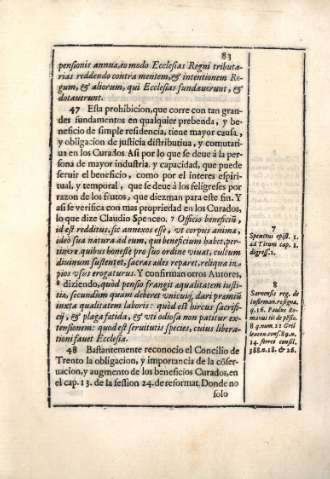 83
pensionis annua, to modo Ecclesias Regni tributa-
rias reddendo contra mentem, & intentionem Re-
gum, & aliorum, qui Ecclesias fundaverunt, &
dotaverunt.
47 Esta prohibicion, que corre con tan gran-
des fundamentos en qualquier prebenda, y be
neficio de simple residencia, tiene mayor causa,
y obligacion de justicia distributiua, y comutati-
ua en los Curados. Asi por lo que se deue à la per-
sona de mayor industria, y capacidad, que puede
seruir el beneficio, como por el interes espiri-
tual, y temporal, que se deue à los feligreses por
razon de los frutos, que diezman para este fin. Y
asi se verifica con mas propriedad en los Curados,
lo que dize Claudio Spenceo. 7 Officio beneficiũ,
id est redditus, sic annexos esse, vt corpus anima,
ideo sua natura ad eum, qui beneficium habet, per-
tinere quibus honeste pro suo ordine viuat, cultum
diuinum sustentet, sacras ædes reparet, reliqua in
pios vsos erogaturus. Y confirman otros Autores,
8 diziendo, quid penso frangit æqualitatem iusti-
tiæ, secundum quam deberet vnicuiq; dari præmiũ
iuxta qualitatem laborum, quod est hircus sacrifi-
cij, & plaga fatida, & vti odiosa non patitur ex-
tensionem: quod est seruitutis species, cuius libera-
tioni fauet Ecclesia.
48 Bastantemente reconocio el Concilio de
Trento la obligacion, y importancia de la cõser-
uacion, y augmento de los beneficios Curados, en
el cap. 13. de la session 24. de reformat. Donde no
solo
7
Spenceus epist. 1.
ad Titum cap. 1.
digres. 1.
8
q. 16.
9. num. 22
388. n. 18. & 26.